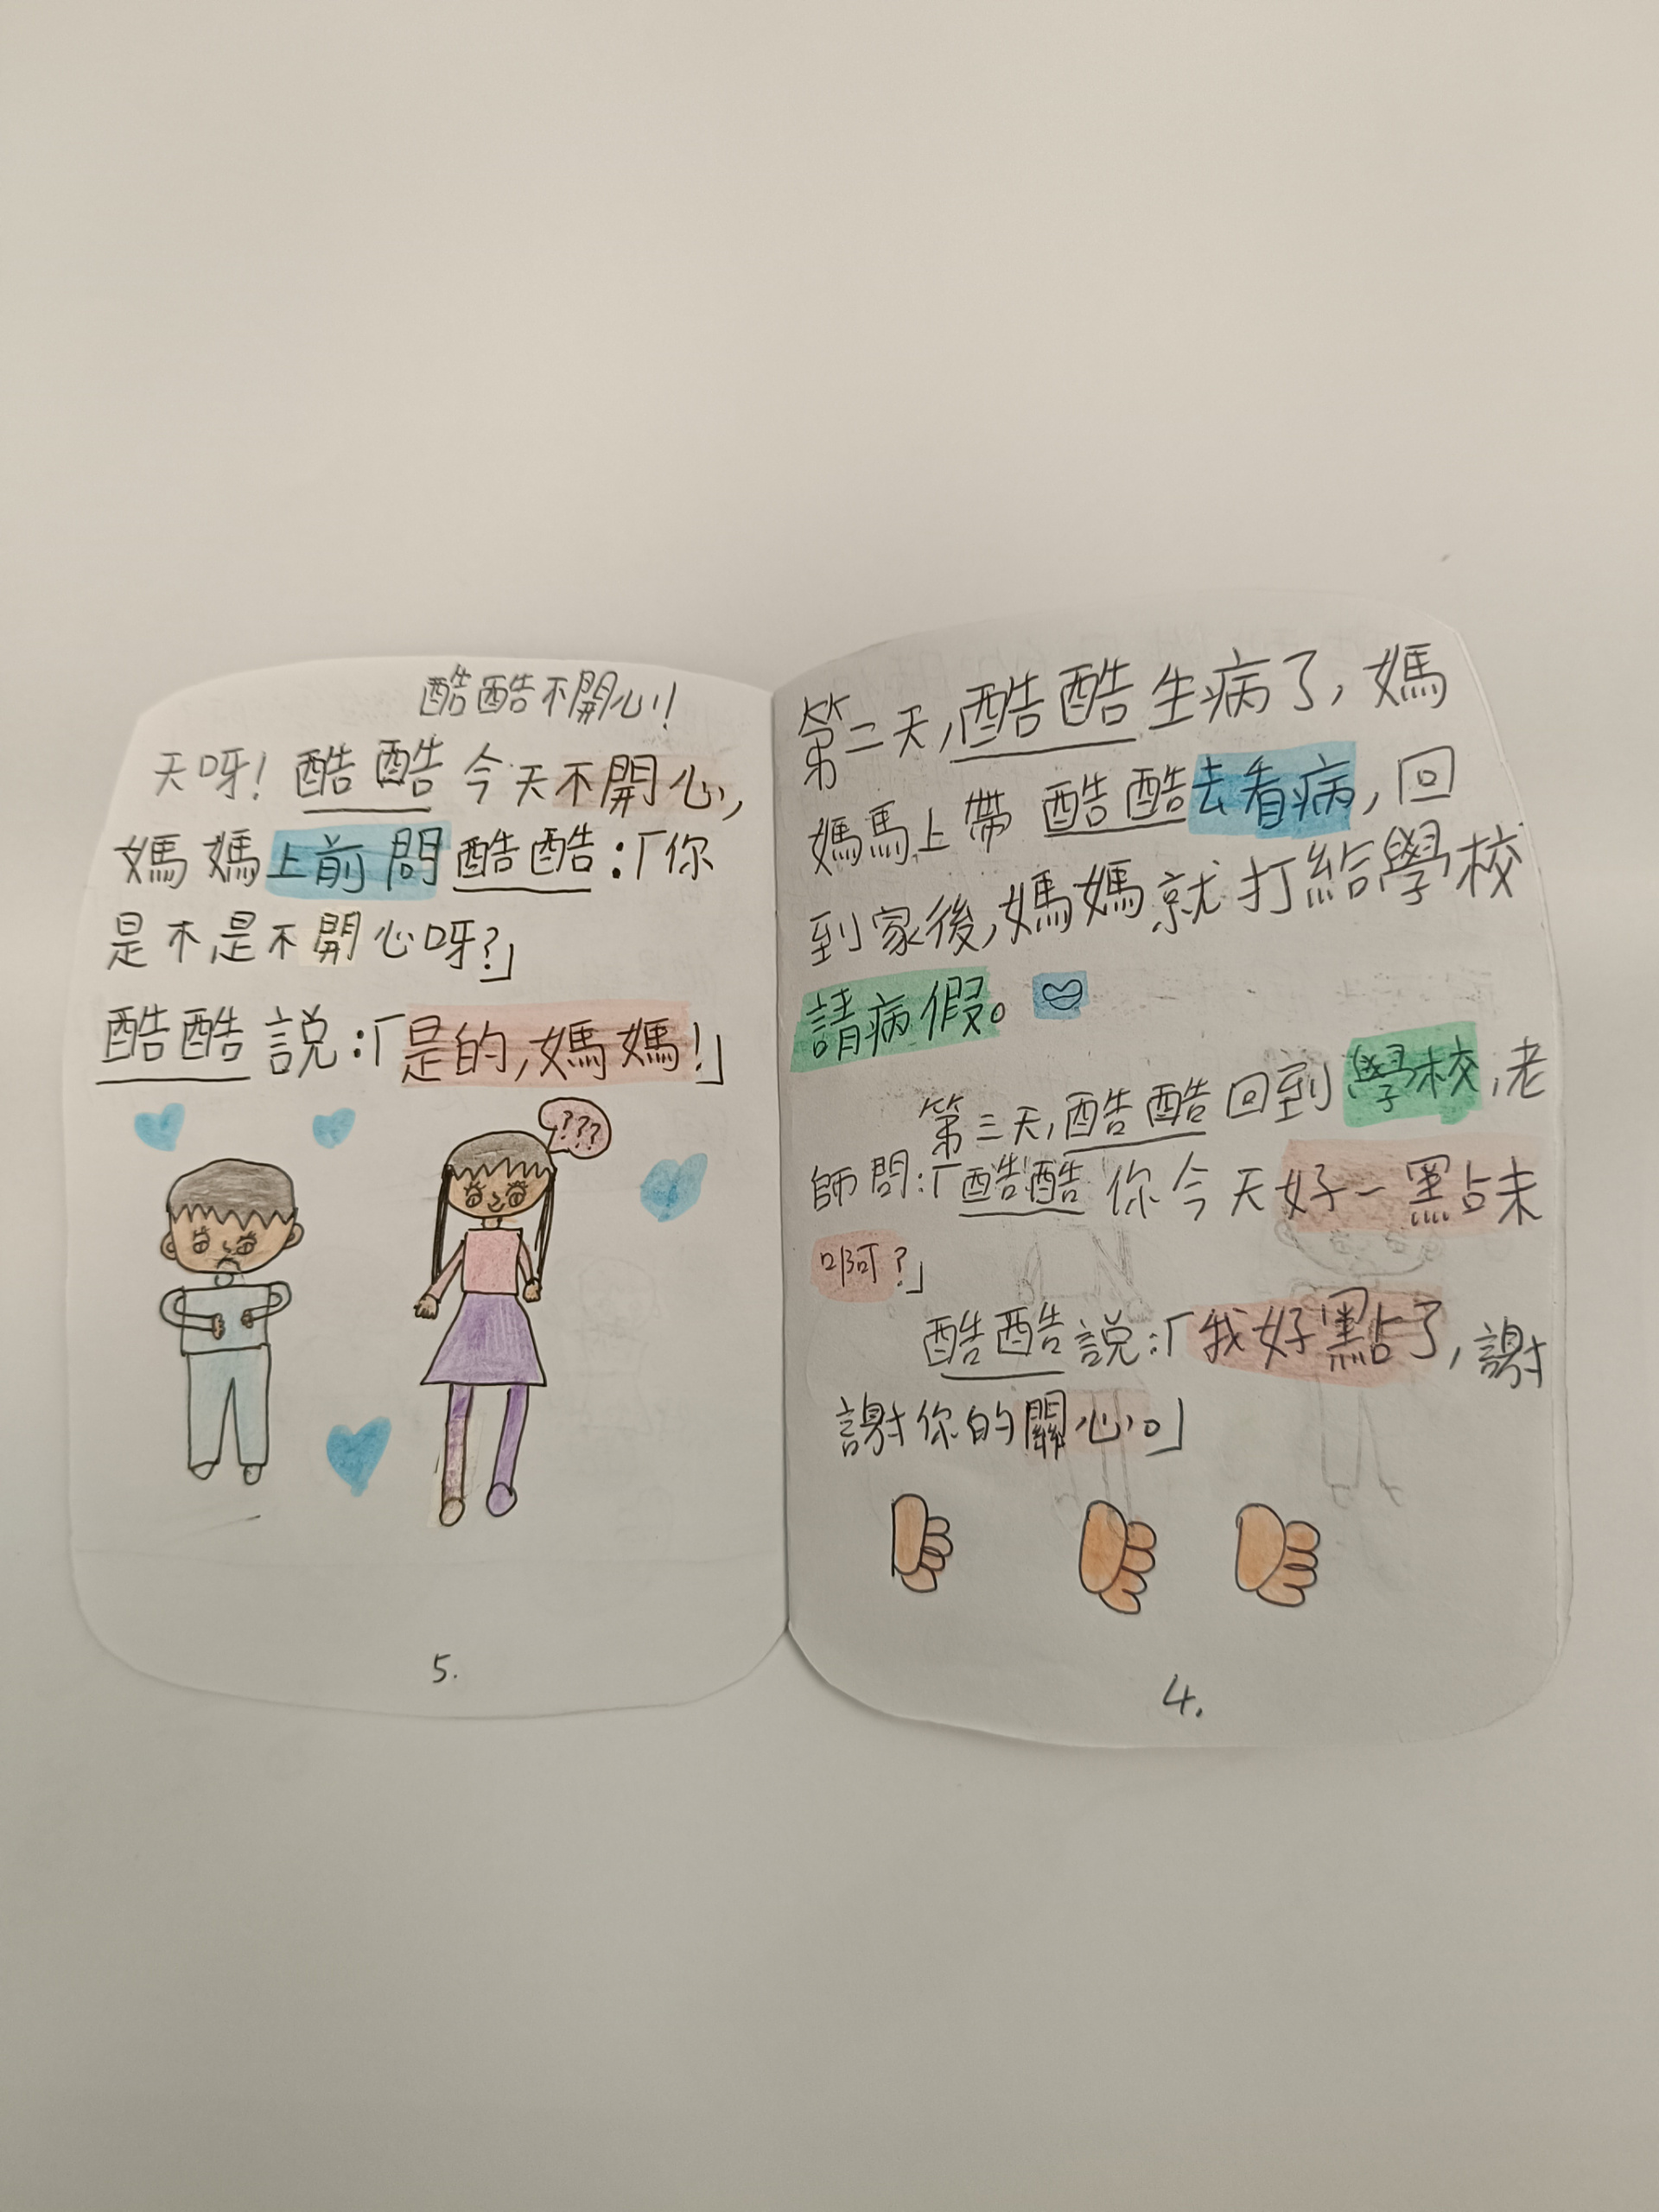 酷酷不開心!
天呀!酷酷今天不開心,
媽媽上前問酷酷:「你
是不是不開心呀?」
酷酷說:「是的,媽媽!」
???
5.
第二天,酷酷生病了,媽
媽馬上帶酷酷去看病,回
到家後,媽媽就打給學校
請病假。
第三天,酷酷回到學校,老
師問:「酷酷你今天好一點未
啊?」
酷酷說:「我好點了,謝
謝你的關心。」
4.